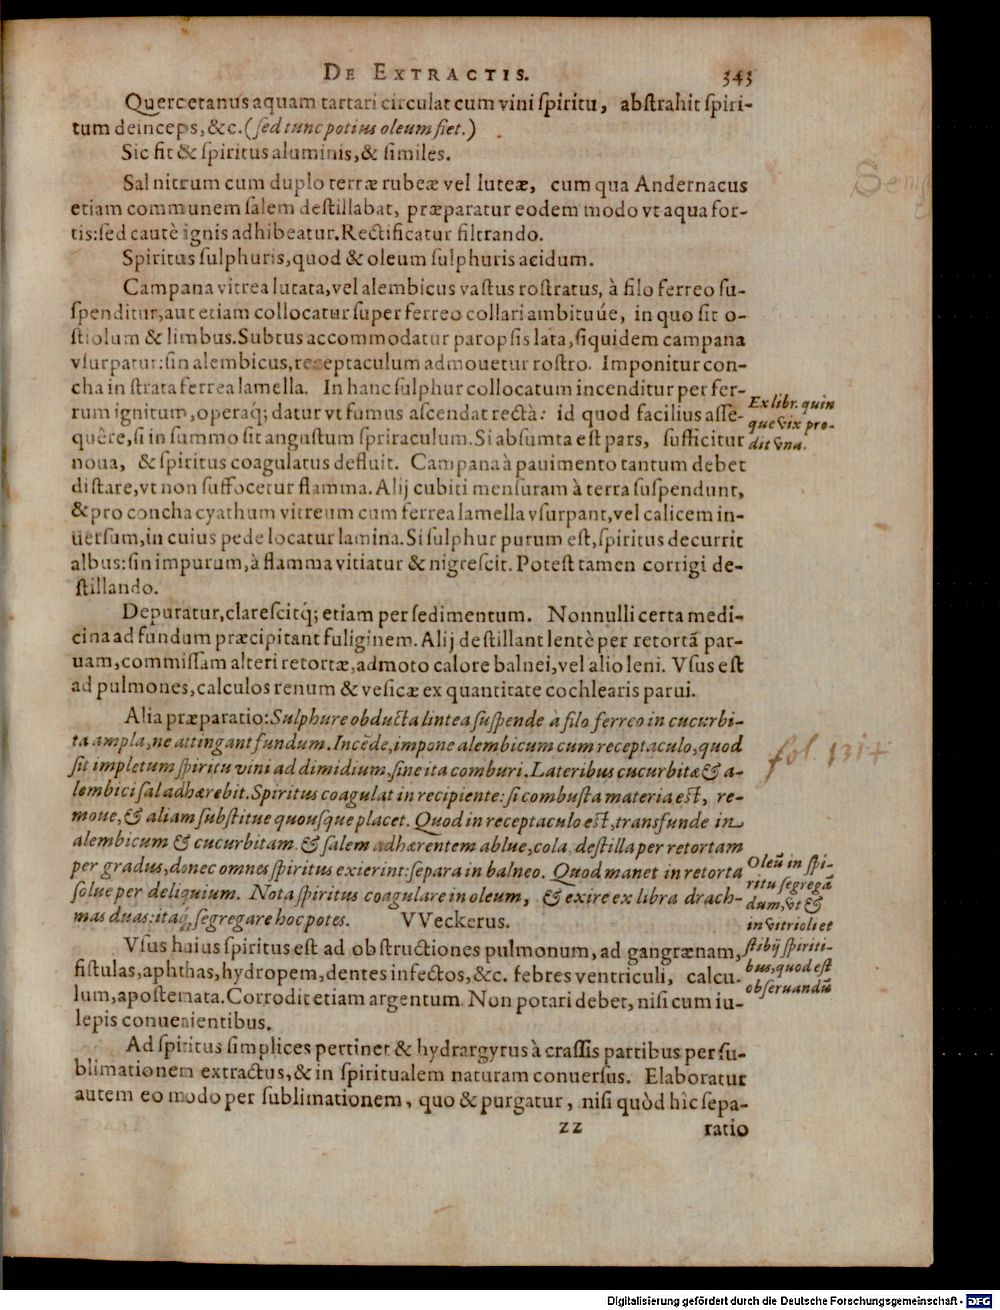 DE EXTRACTIS. 343
Quercetanus aquam tartari circulat cum vini ſpiritu, abſtrahit ſpiri-
tum deinceps, &c. (ſed tunc potius oleum fiet.)
Sic fit & ſpiritus aluminis, & ſimiles.
Sal nitrum cum duplo terræ rubeæ vel luteæ, cum qua Andernacus
etiam communem ſalem deſtillabat, præparatur eodem modo vt aqua for-
tis: ſed cautè ignis adhibeatur. Rectificatur filtrando.
Spiritus ſulphuris, quod & oleum ſulphuris acidum.
Campana vitrea lutata, vel alembicus vaſtus roſtratus, à filo ferreo ſu-
ſpenditur, aut etiam collocatur ſuper ferreo collari ambituúe, in quo ſit o-
ſtiolum & limbus. Subtus accommodatur paropſis lata, ſiquidem campana
vſurpatur: ſin alembicus, receptaculum admouetur roſtro. Imponitur con-
cha in ſtrata ferrea lamella. In hanc ſulphur collocatum incenditur per fer-
rum ignitum, operaq; datur vt fumus aſcendat rectà: id quod facilius aſſe-
quêre, ſi in ſummo ſit anguſtum ſpriraculum. Si abſumta eſt pars, ſufficitur
noua, & ſpiritus coagulatus defluit. Campana à pauimento tantum debet
diſtare, vt non ſuffocetur flamma. Alij cubiti menſuram à terra ſuſpendunt,
& pro concha cyathum vitreum cum ferrea lamella vſurpant, vel calicem in-
uerſum, in cuius pede locatur lamina. Si ſulphur purum eſt, ſpiritus decurrit
albus: ſin impurum, à flamma vitiatur & nigreſcit. Poteſt tamen corrigi de-
ſtillando.
Ex libr. quin
que vix pro-
dit vna.
Depuratur, clareſcitq; etiam per ſedimentum. Nonnulli certa medi-
cina ad fundum præcipitant fuliginem. Alij deſtillant lentè per retortã par-
uam, commiſſam alteri retortæ, admoto calore balnei, vel alio leni. Vſus eſt
ad pulmones, calculos renum & veſicæ ex quantitate cochlearis parui.
Alia præparatio: Sulphure obducta lintea ſuſpende à filo ferreo in cucurbi-
ta ampla, ne attingant fundum. Incẽde, impone alembicum cum receptaculo, quod
ſit impletum ſpiritu vini ad dimidium, ſine ita comburi. Lateribus cucurbitæ & a-
lembici ſal adhærebit. Spiritus coagulat in recipiente: ſi combuſta materia eſt, re-
moue, & aliam ſubſtitue quouſque placet. Quod in receptaculo eſt, transfunde in
alembicum & cucurbitam. & ſalem adhærentem ablue, cola, deſtilla per retortam
per gradus, donec omnes ſpiritus exierint: ſepara in balneo. Quod manet in retorta
ſolue per deliquium. Nota ſpiritus coagulare in oleum, & exire ex libra drach-
mas duas: itaq; ſegregare hoc potes. VVeckerus.
fol. 131
Oleũ in ſpi-
ritu ſegregã
dum, vt &
in vitrioli et
ſtibij ſpiriti-
bus, quod eſt
obſeruandũ
Vſus huius ſpiritus eſt ad obſtructiones pulmonum, ad gangrænam,
fiſtulas, aphthas, hydropem, dentes infectos, &c. febres ventriculi, calcu-
lum, apoſtemata. Corrodit etiam argentum. Non potari debet, niſi cum iu-
lepis conuenientibus.
Ad ſpiritus ſimplices pertinet & hydrargyrus à craſſis partibus per ſu-
blimationem extractus, & in ſpiritualem naturam conuerſus. Elaboratur
autem eo modo per ſublimationem, quo & purgatur, niſi quòd hìc ſepa-
zz ratio
Digitalisierung gefördert durch die Deutsche Forschungsgemeinschaft - DFG